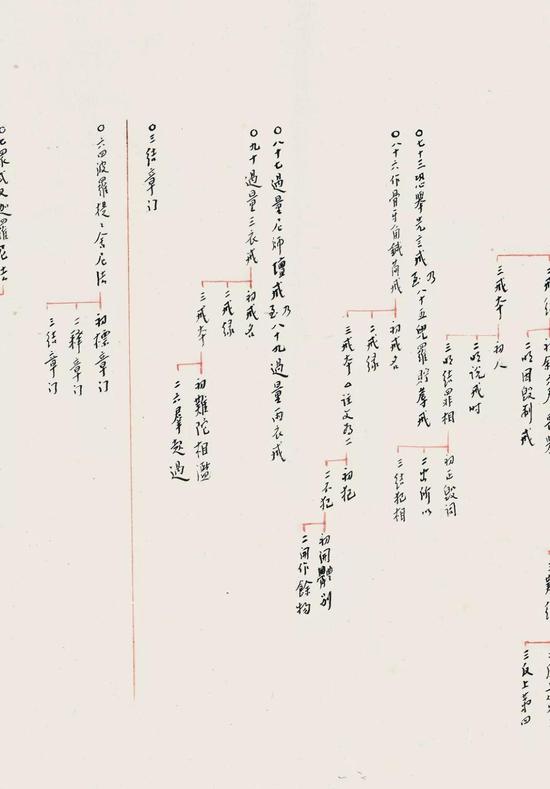 三戒本
初人
二明說戒时
三明結罪相
初正毀词
二出所以
三結犯相
三反上第四
二明因毀制戒
○七十三恐舉先言戒乃至八十五兜羅貯蓐戒
○八十六作骨牙角鍼筒戒
初戒名
二戒緣
三戒本
註文为二
初犯
二不犯
初開體别
二開作餘物
○八十七過量尼师壇戒乃至八十九過量雨衣戒
○九十過量三衣戒
初戒名
二戒緣
三戒本
初難陀相濫
二六羣超過
○三結章门
○六四波羅提提舍尼法
初標章门
二釋章门
三結章门